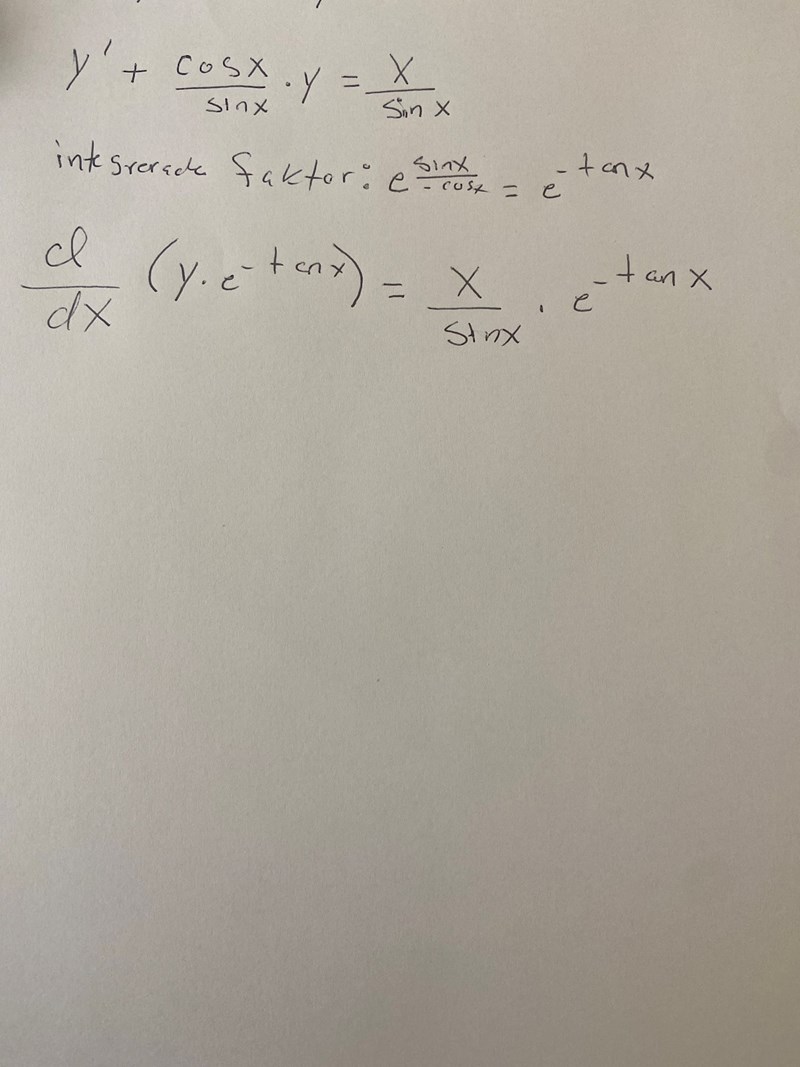 y' + cosx/sinx · y = x/sin x
faktor: e^(sinx/-cosx) = e^(-tanx)
d/dx (y·e^(-tanx)) = x/sinx · e^(-tanx)